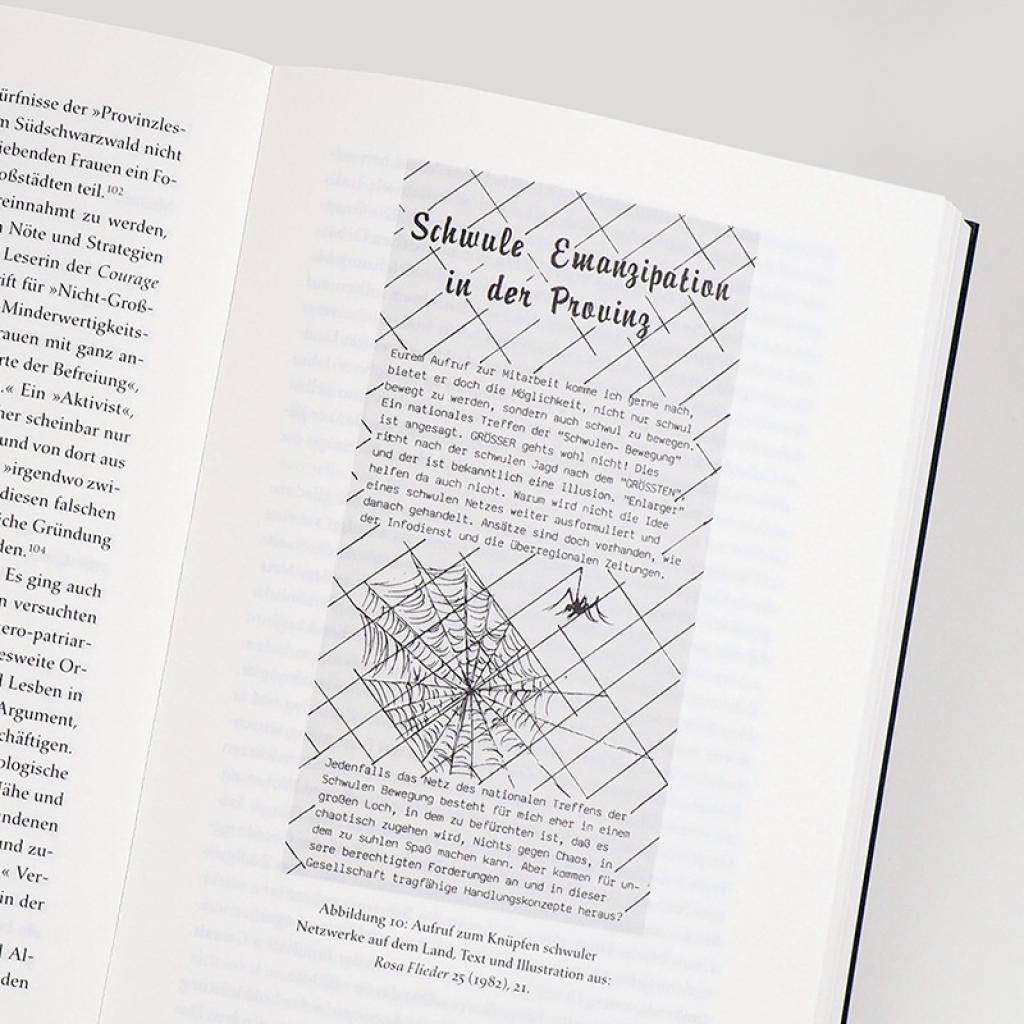 ürfnisse der »Provinzles-
m Südschwarzwald nicht
iebenden Frauen ein Fo-
oßstädten teil.¹⁰²
reinnahmt zu werden,
n Nöte und Strategien
Leserin der Courage
ift für »Nicht-Groß-
-Minderwertigkeits-
rauen mit ganz an-
rte der Befreiung«,
.« Ein »Aktivist«,
her scheinbar nur
und von dort aus
»irgendwo zwi-
diesen falschen
iche Gründung
den.¹⁰⁴
Es ging auch
n versuchten
tero-patriar-
esweite Or-
d Lesben in
Argument,
chäftigen.
ologische
Nähe und
undenen
und zu-
« Ver-
in der
d Al-
den
Schwule Emanzipation
in der Provinz
Eurem Aufruf zur Mitarbeit komme ich gerne nach,
bietet er doch die Möglichkeit, nicht nur schwul
bewegt zu werden, sondern auch schwul zu bewegen.
Ein nationales Treffen der "Schwulen- Bewegung"
ist angesagt. GRÖSSER gehts wohl nicht! Dies
richt nach der schwulen Jagd nach dem "GRÖSSTEN",
und der ist bekanntlich eine Illusion. "Enlarger"
helfen da auch nicht. Warum wird nicht die Idee
eines schwulen Netzes weiter ausformuliert und
danach gehandelt. Ansätze sind doch vorhanden, wie
der Infodienst und die überregionalen Zeitungen.
Jedenfalls das Netz des nationalen Treffens der
Schwulen Bewegung besteht für mich eher in einem
großen Loch, in dem zu befürchten ist, daß es
chaotisch zugehen wird, Nichts gegen Chaos, in
dem zu suhlen Spaß machen kann. Aber kommen für un-
sere berechtigten Forderungen an und in dieser
Gesellschaft tragfähige Handlungskonzepte heraus?
Abbildung 10: Aufruf zum Knüpfen schwuler
Netzwerke auf dem Land, Text und Illustration aus:
Rosa Flieder 25 (1982), 21.